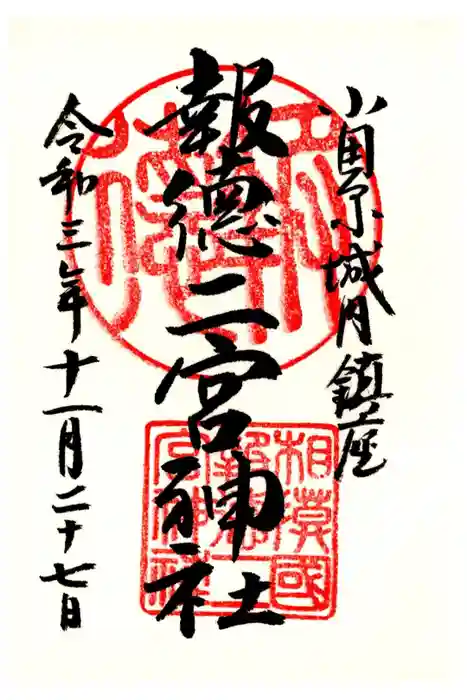 小田原城内鎮座
報徳二宮神社
令和三年十一月二十七日
相模國
報徳二
宮神社